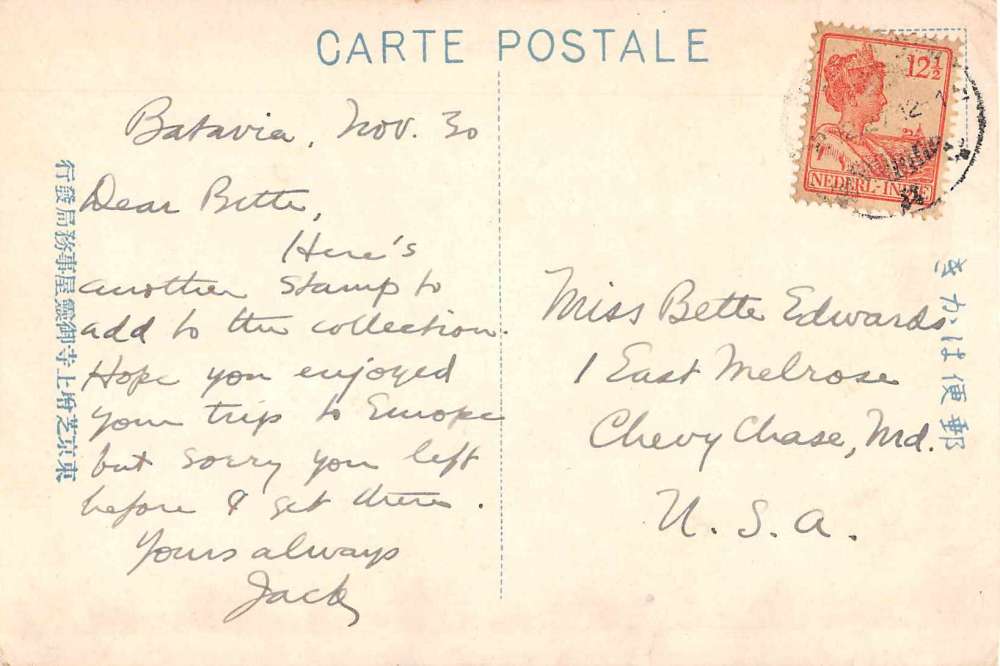 CARTE POSTALE
12½
NEDERL.-INDIE
Batavia, Nov. 30
Dear Bette,
Here's
another stamp to
add to the collection.
Hope you enjoyed
your trip to Europe
but sorry you left
before I get there.
Yours always
Jack
Miss Bette Edwards
1 East Melrose
Chevy Chase, Md.
U.S.A.
郵便はかき
東京芝增上寺御靈屋事務局發行